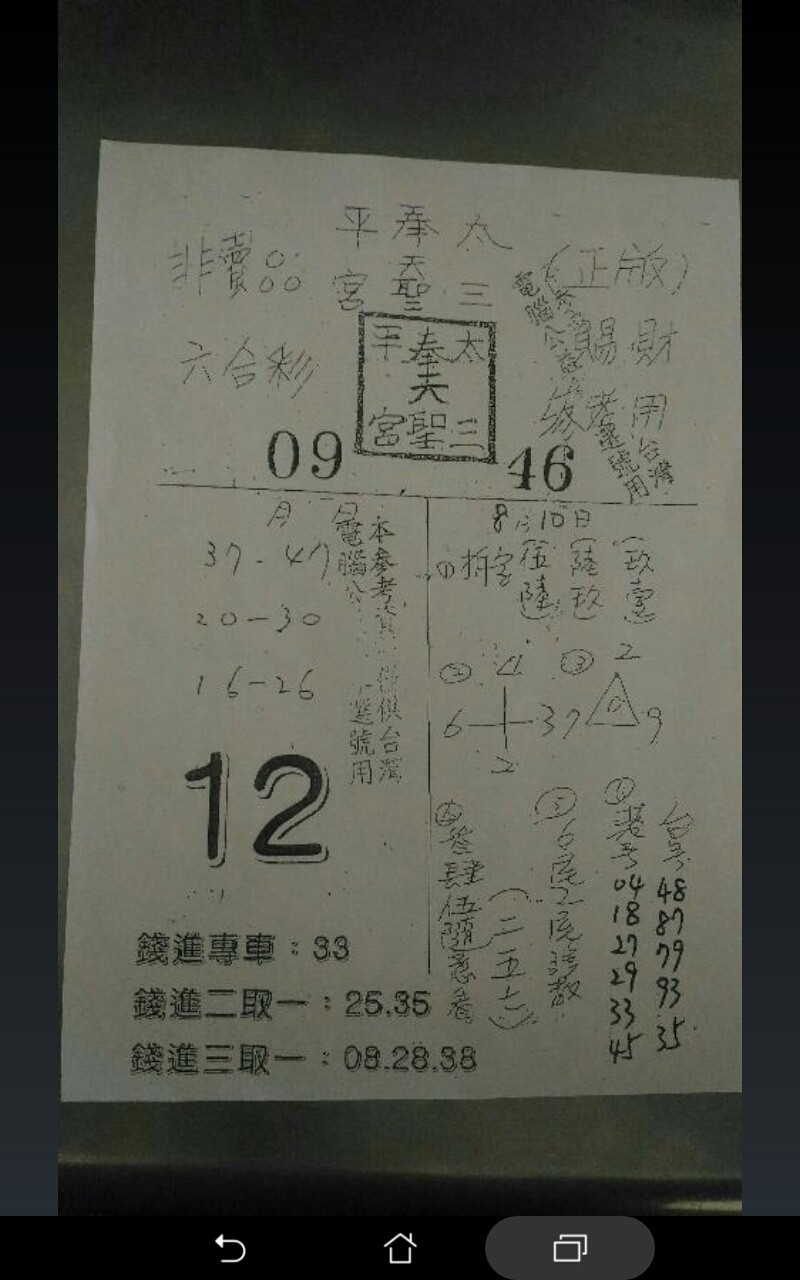 太奉平
三天聖宮
(正版)
非賣品
六合彩
賜財
參考用
太奉平
天
三聖宮
09
46
台灣
選號用
月 日
37-47
20-30
16-26
本參考資
僅供台灣
電腦公
選號用
12
錢進專車：33
錢進二取一：25.35
錢進三取一：08.28.38
8月10日
①拆字(伍陸)(陸玖)(玖壹)
② 4
6 37
2
③ 2
0 9
叁肆伍隨意看
(二五七)
⑤6尾2尾
⑥
04
18
27
29
33
45
台號
48
87
79
93
35